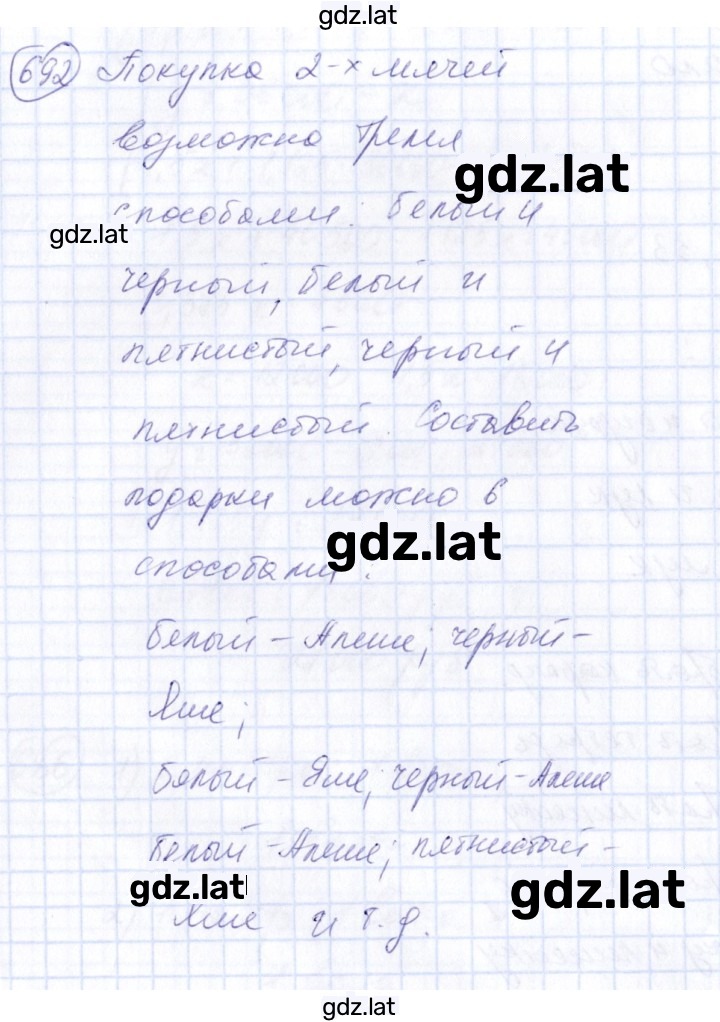 gdz.lat
692 Покупка 2-х мячей
возможно тремя
gdz.lat
способами: белый и
gdz.lat
черный, белый и
пятнистый, черный и
пятнистый. Составить
подарки можно 6
gdz.lat
способами:
белый - Алеше; черный -
Яше;
белый - Яше; черный - Алеше
Белый - Алеше; пятнистый -
gdz.lat
gdz.lat
Яше и т.д.
gdz.lat